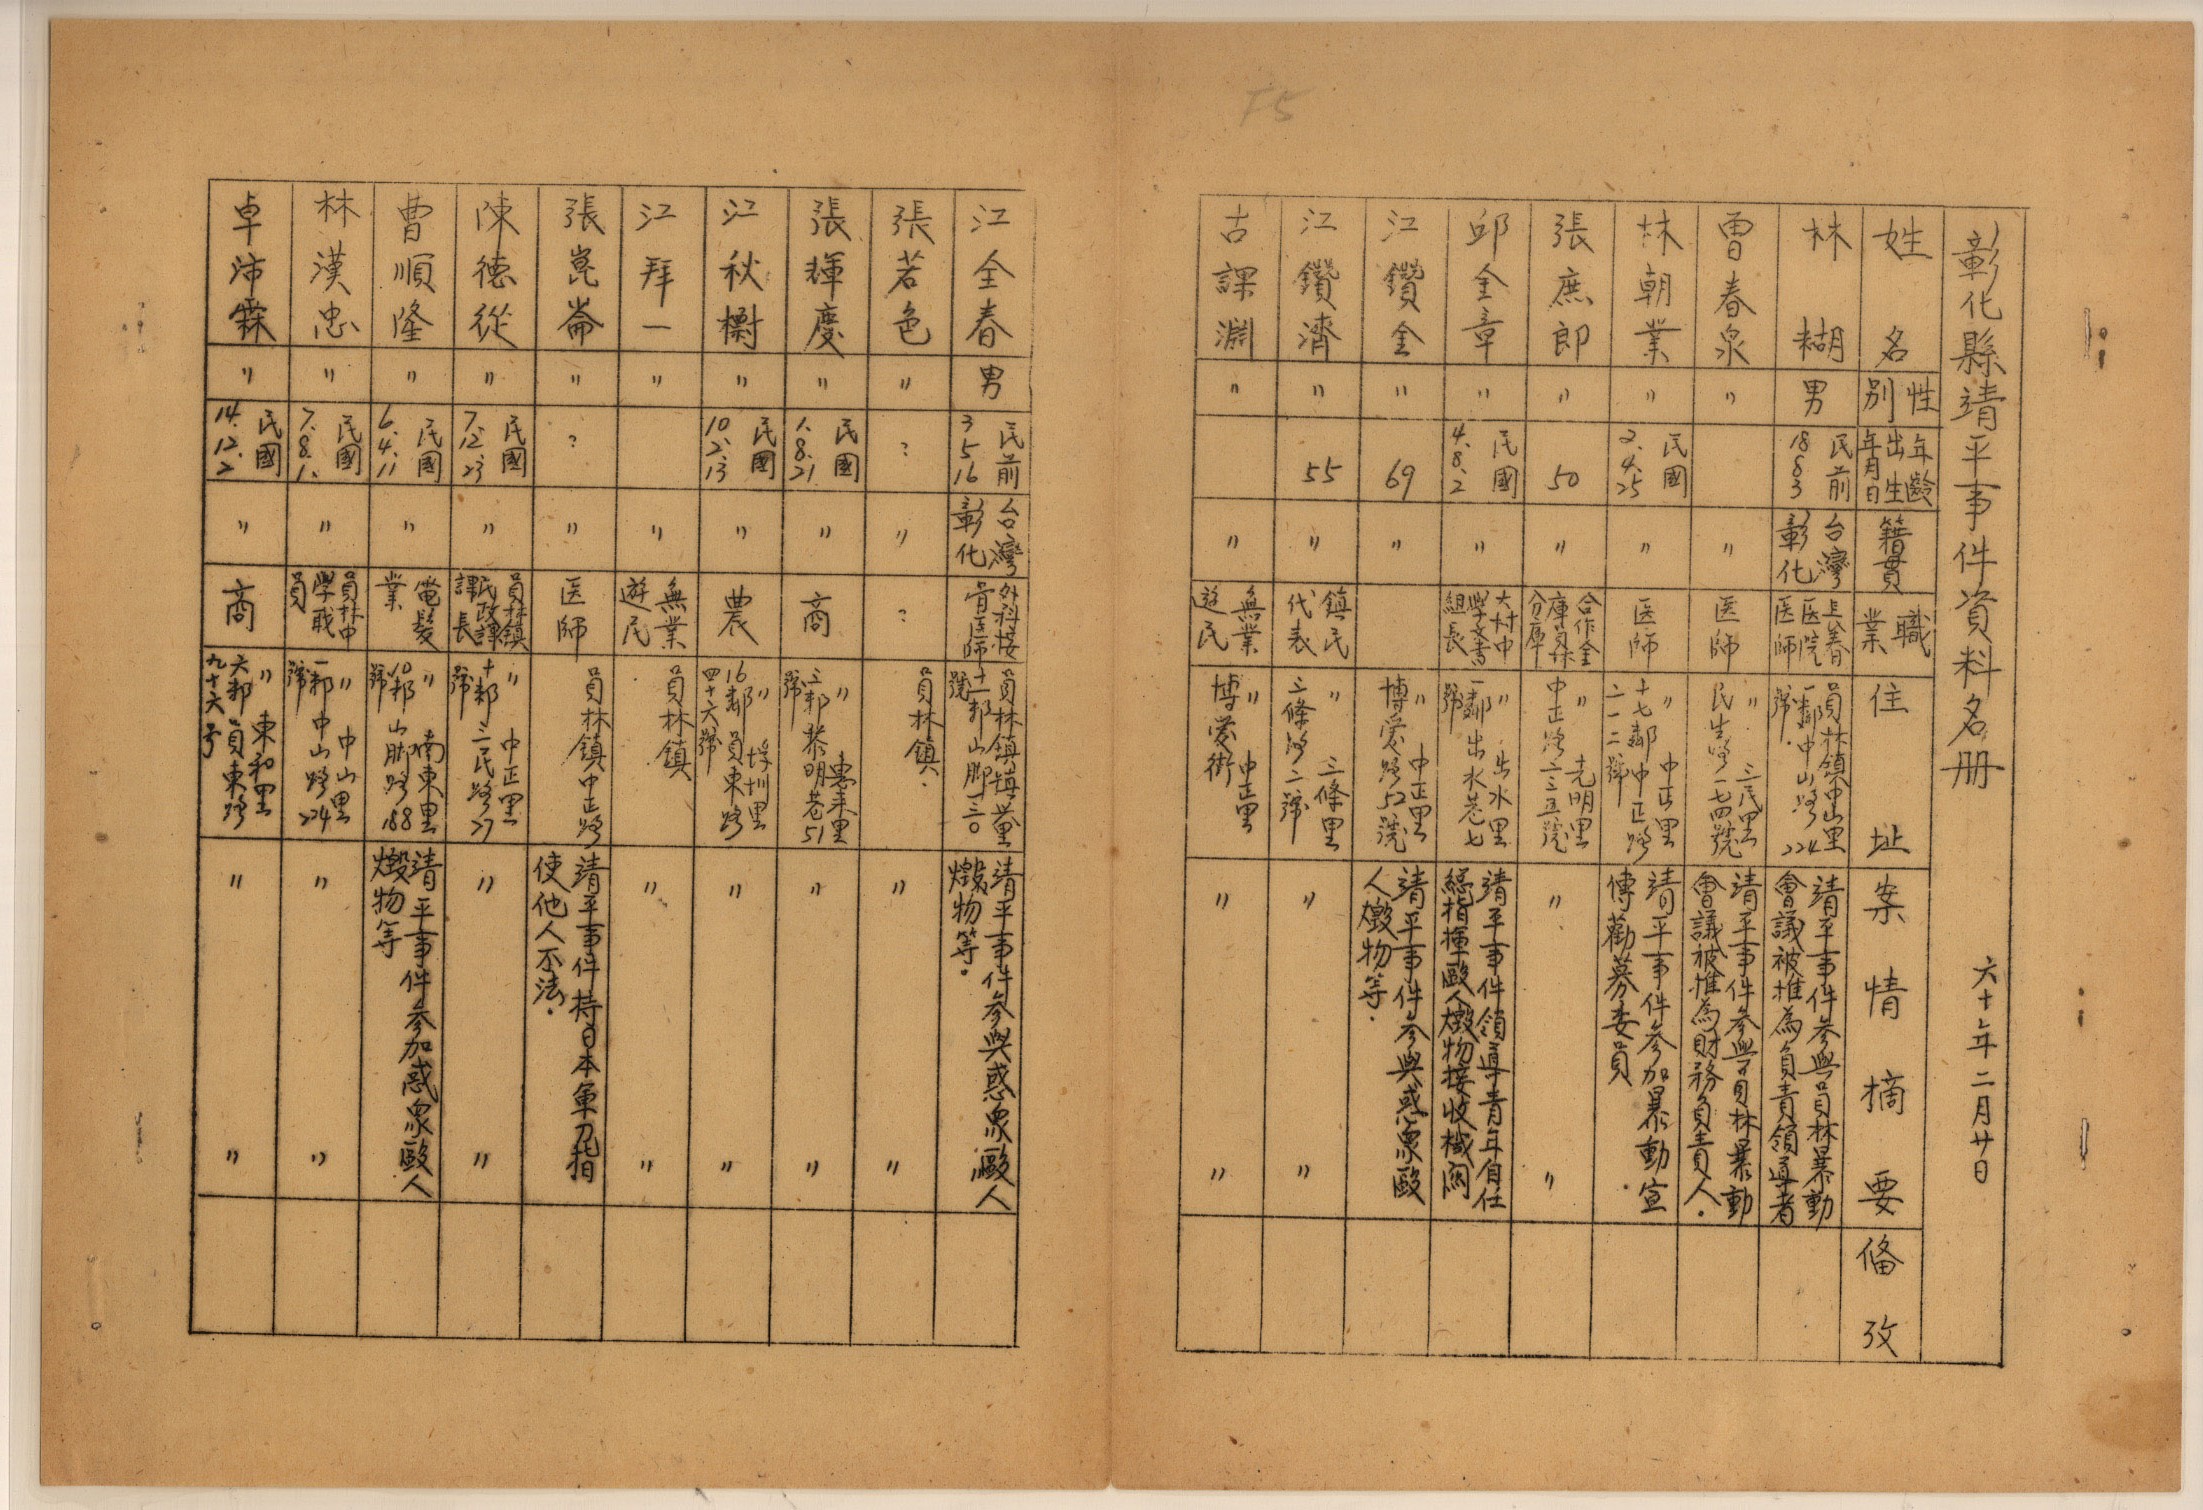 F5
彰化縣靖平事件資料名册 六十年二月廿日
姓名 性別 年齡出生年月日 籍貫 職業 住址 案情摘要 備攷
林糊 男 民前18 8 3 台灣彰化 長春医院医師 員林鎮中山里一鄰中山路224號. 靖平事件參與員林暴動會議被推為負責領導者
曹春泉 〃 〃 医師 〃三民里民生路一七四號 靖平事件參與員林暴動會議被推為財務負責人.
林朝業 〃 民國2.4.25 〃 医師 〃中正里十七鄰中正路二一二號 靖平事件參加暴動宣傳勸募委員
張庶郎 〃 50 〃 合作金庫員林分庫 〃光明里中正路二三五號 〃 〃
邱金章 〃 民國4.8.2 〃 大村中學文書組長 〃出水里一鄰出水巷七號 靖平事件領導青年自任總指揮毆人燬物接收機関
江鑽金 〃 69 〃 〃中正里博愛路52號 靖平事件參與惑衆毆人燬物等.
江鑽濟 〃 55 〃 鎮民代表 〃三條里三條路二號 〃 〃
古課淵 〃 〃 無業遊民 〃中正里博愛街 〃 〃
江全春 男 民前3 5 16 台灣彰化 外科接骨医師 員林鎮鎮興里十一鄰山脚一三〇號 靖平事件參與惑衆毆人燬物等.
張若色 〃 ? 〃 ? 員林鎮. 〃 〃
張輝慶 〃 民國1.8.21 〃 商 〃惠來里三鄰黎明巷51號 〃 〃
江秋樹 〃 民國10.2.13 〃 農 〃埤圳里16鄰員東路四十六號 〃 〃
江拜一 〃 〃 無業遊民 員林鎮 〃 〃
張崑崙 〃 ? 〃 医師 員林鎮中正路 靖平事件持日本軍刀指使他人不法.
陳德從 〃 民國7.12.23 〃 員林鎮民政課課長 〃中正里十鄰三民路27號 〃 〃
曹順隆 〃 民國6.4.11 〃 電髮業 〃南東里10鄰山脚路188號 靖平事件參加惑衆毆人燬物等
林漢忠 〃 民國7.8.1. 〃 員林中學職員 〃中山里一鄰中山路224號 〃 〃
卓沛霖 〃 民國14.12.2 〃 商 〃東和里六鄰員東路九十六号 〃 〃